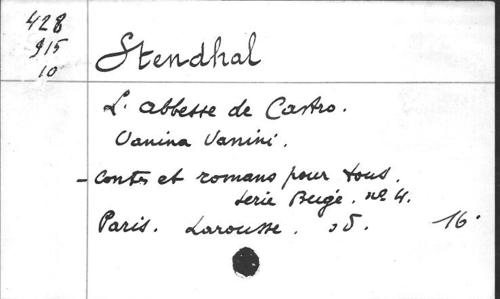 428
915
10
Stendhal
L'abbesse de Castro.
Vanina Vanini.
- Contes et romans pour tous.
Serie Beige. nº 4.
Paris. Larousse. 16º